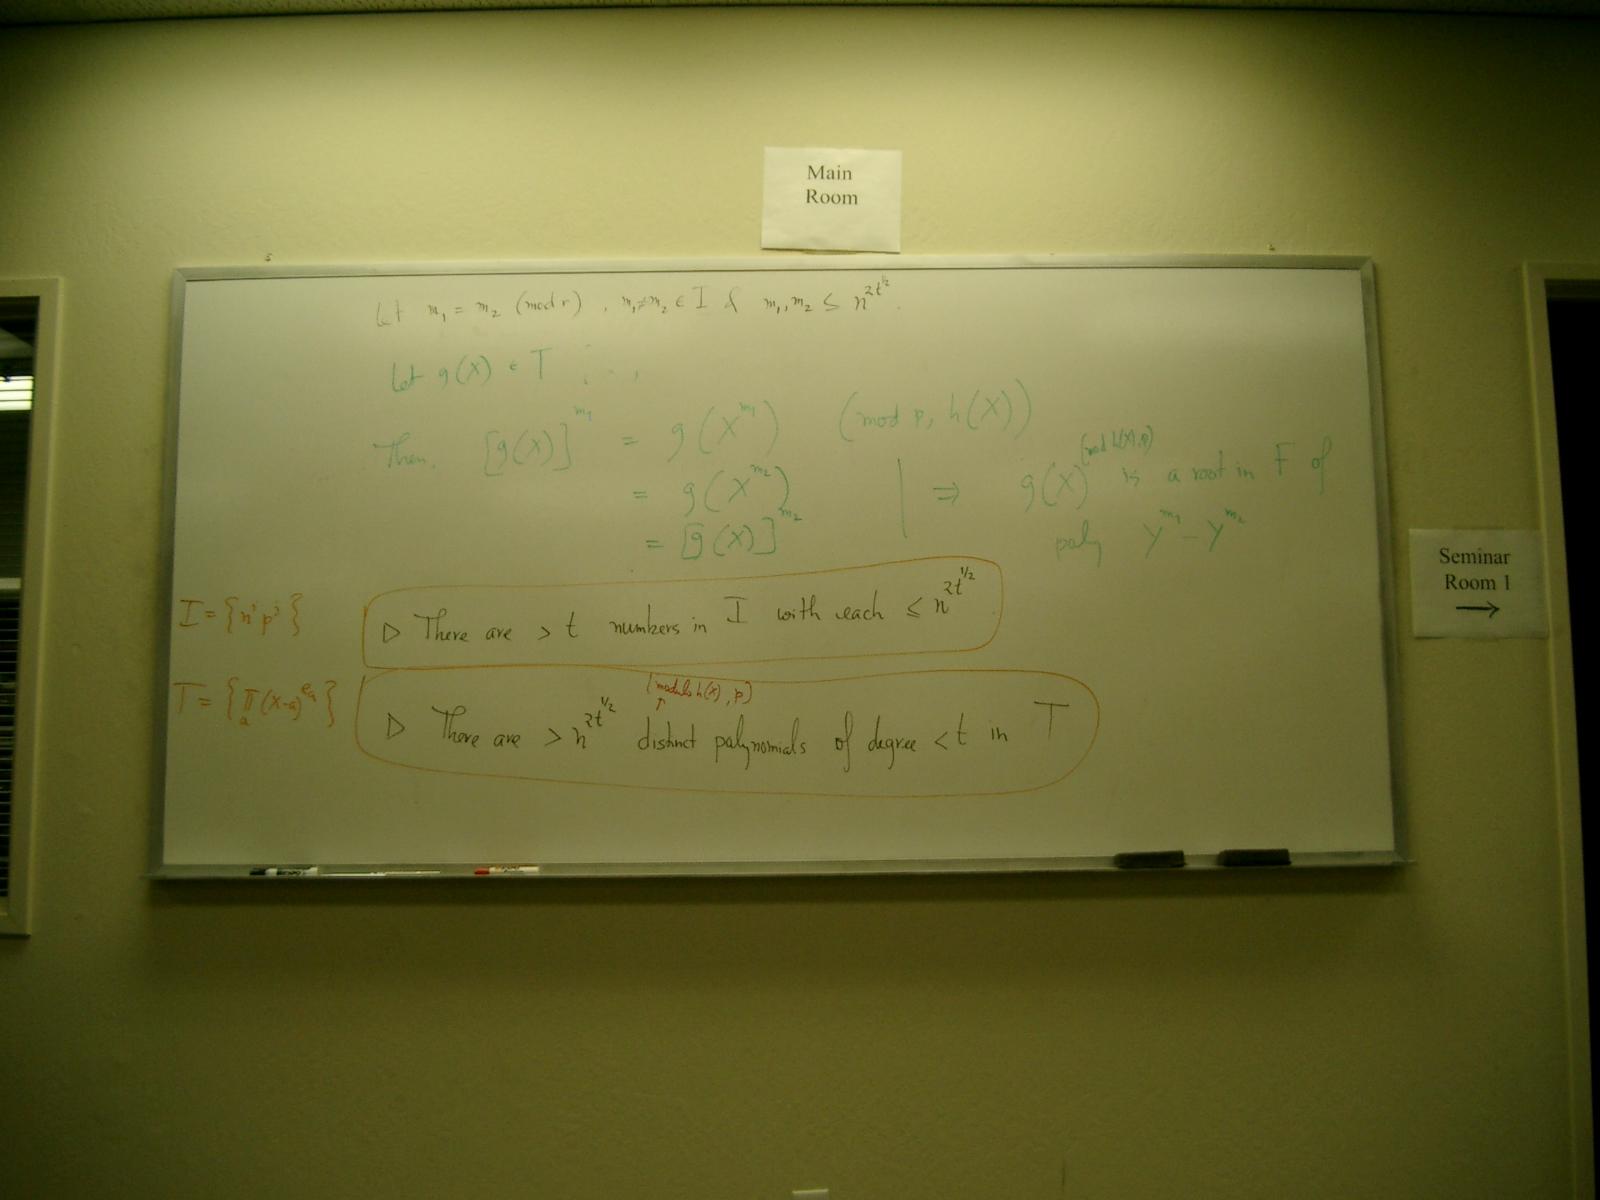 Main
Room
Let m₁ = m₂ (mod r) , m₁≠m₂ ∈ I & m₁, m₂ ≤ n^{2t^{1/2}}.
Let g(X) ∈ T
Then, [g(X)]^{m₁} = g(X^{m₁}) (mod p, h(X))
= g(X^{m₂})
= [g(X)]^{m₂}
⇒ g(X) (mod h(X), p) is a root in F of
poly Y^{m₁} - Y^{m₂}
I = {n^i p^j}
▷ There are > t numbers in I with each ≤ n^{2t^{1/2}}
T = {∏_a (X-a)^{e_a}}
(modulo h(X), p)
▷ There are > n^{2t^{1/2}} distinct polynomials of degree < t in T
Seminar
Room 1
→